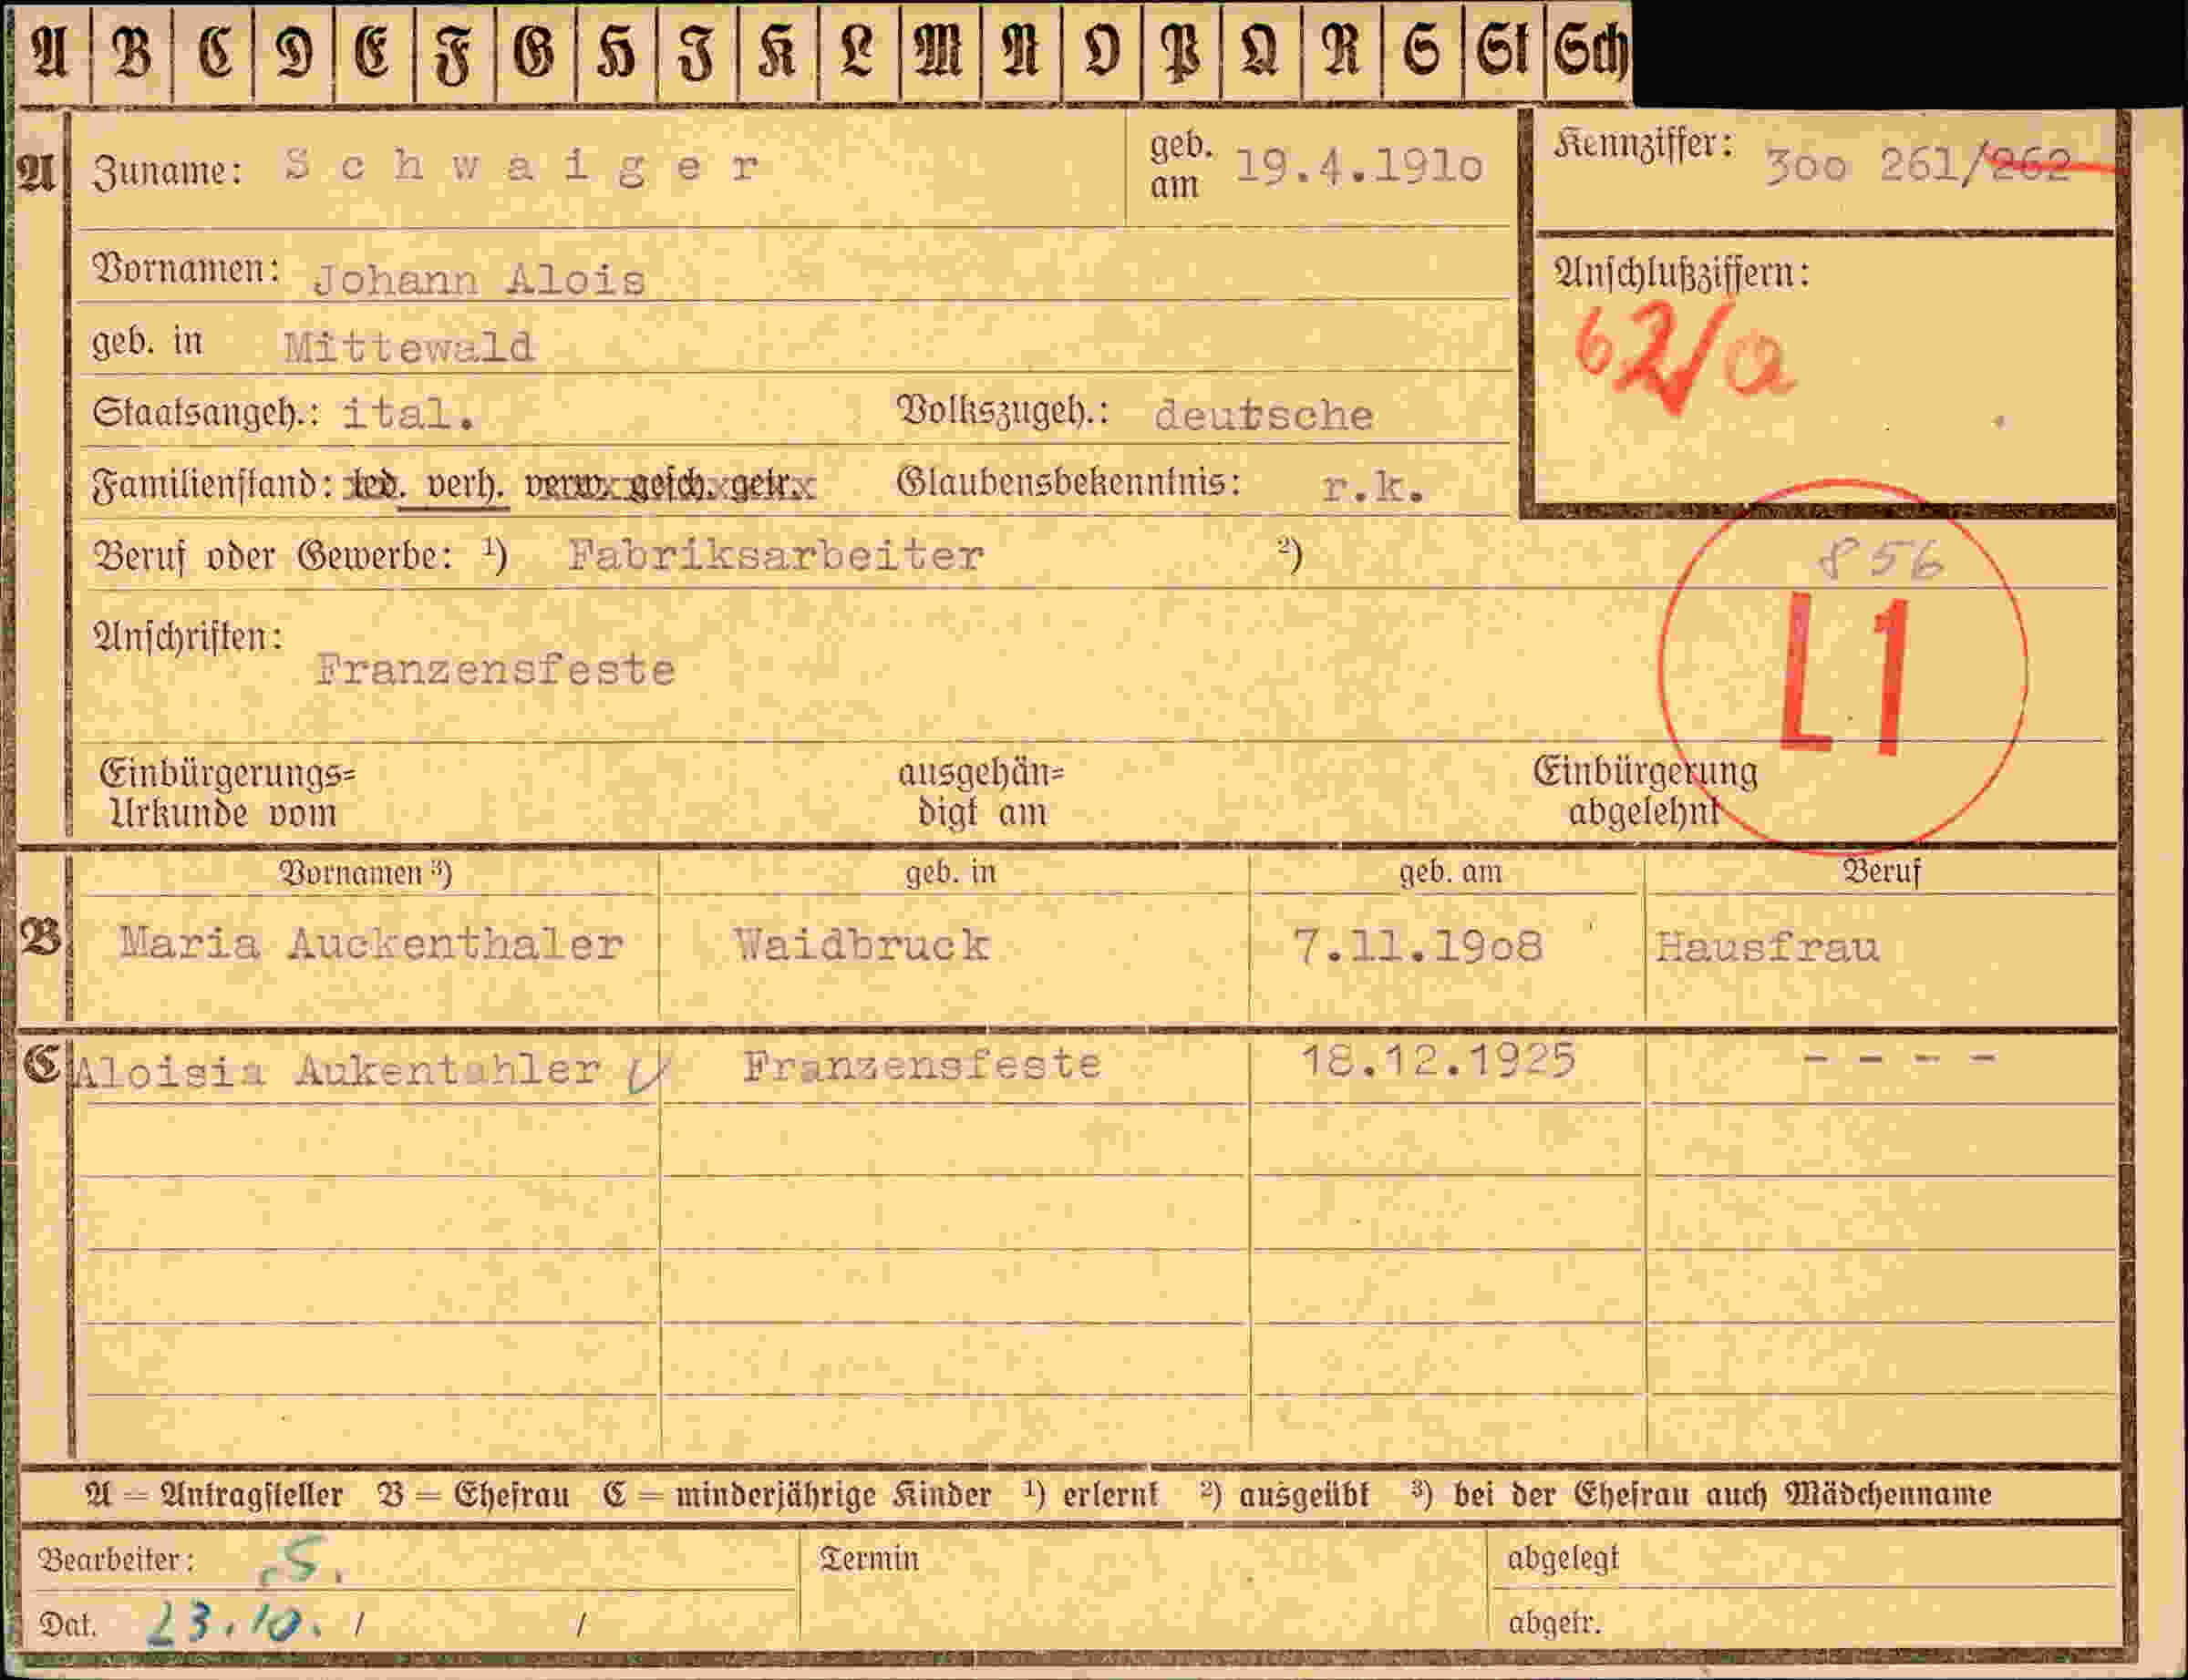 A B C D E F G H I K L M N O P Q R S St Sch
A Zuname: Schwaiger geb. am 19.4.191o Kennziffer: 3oo 261/262
Vornamen: Johann Alois Anschlußziffern:
geb. in Mittewald 62/a
Staatsangeh.: ital. Volkszugeh.: deutsche
Familienstand: led. verh. verw. gesch. getr. Glaubensbekenntnis: r.k.
Beruf oder Gewerbe: ¹) Fabriksarbeiter ²) 856
Anschriften: L1
Franzensfeste
Einbürgerungs= ausgehän= Einbürgerung
Urkunde vom digt am abgelehnt
Vornamen ³) geb. in geb. am Beruf
B Maria Auckenthaler Waidbruck 7.11.19o8 Hausfrau
C Aloisia Aukentahler Franzensfeste 18.12.1925 - - - -
A = Antragsteller B = Ehefrau C = minderjährige Kinder ¹) erlernt ²) ausgeübt ³) bei der Ehefrau auch Mädchenname
Bearbeiter: S. Termin abgelegt
Dat. 23.10. / / abgetr.